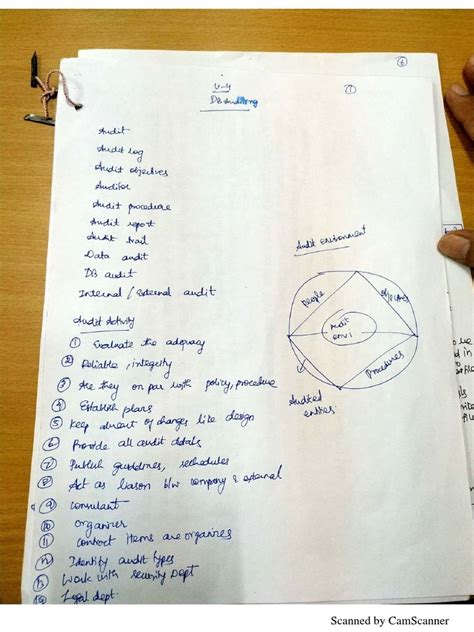 U-4
DB Auditing
①
⑥
Audit
Audit log
Audit objectives
Auditor
Audit procedure
Audit report
Audit trail
Data audit
DB audit
Internal / External audit
Audit Activity
① Evaluate the adequacy
② Reliable, integrity
③ Are they on par with policy, procedure
④ Establish plans
⑤ Keep abreast of changes like design
⑥ Provide all audit details
⑦ Publish guidelines, schedules
⑧ Act as liason b/w company & external
⑨ consultant
⑩ organizer
⑪ contract items are organizes
⑫ Identify audit types
⑬ Work with security Dept
⑭ Legal dept.
Audit environment
People
Objectives
Audit
envi
Procedures
Audited
entities.
Scanned by CamScanner